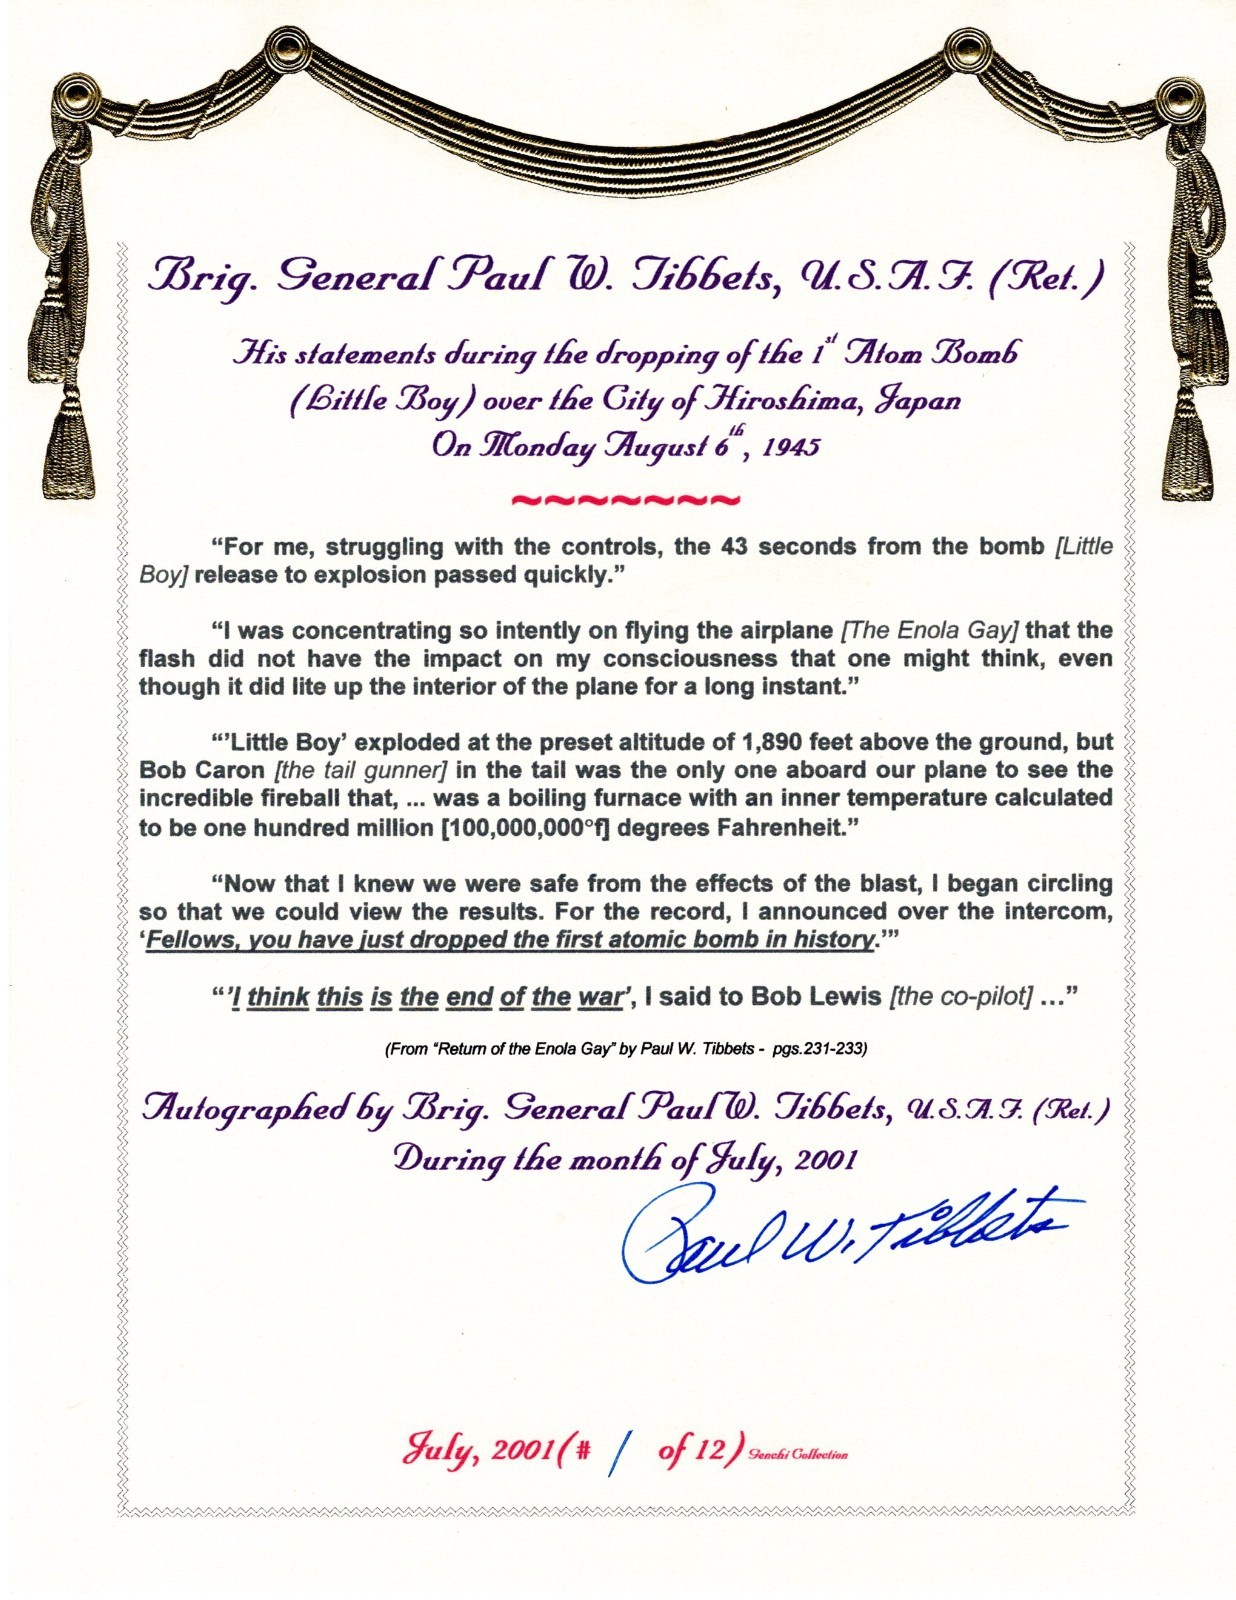 Brig. General Paul W. Tibbets, U.S.A.F. (Ret.)
His statements during the dropping of the 1st Atom Bomb
(Little Boy) over the City of Hiroshima, Japan
On Monday August 6th, 1945
~~~~~~~
“For me, struggling with the controls, the 43 seconds from the bomb [Little
Boy] release to explosion passed quickly.”
“I was concentrating so intently on flying the airplane [The Enola Gay] that the
flash did not have the impact on my consciousness that one might think, even
though it did lite up the interior of the plane for a long instant.”
“’Little Boy’ exploded at the preset altitude of 1,890 feet above the ground, but
Bob Caron [the tail gunner] in the tail was the only one aboard our plane to see the
incredible fireball that, ... was a boiling furnace with an inner temperature calculated
to be one hundred million [100,000,000°f] degrees Fahrenheit.”
“Now that I knew we were safe from the effects of the blast, I began circling
so that we could view the results. For the record, I announced over the intercom,
‘Fellows, you have just dropped the first atomic bomb in history.’”
“’I think this is the end of the war’, I said to Bob Lewis [the co-pilot] ...”
(From “Return of the Enola Gay” by Paul W. Tibbets - pgs.231-233)
Autographed by Brig. General Paul W. Tibbets, U.S.A.F. (Ret.)
During the month of July, 2001
Paul W. Tibbets
July, 2001 (# 1 of 12) Genchi Collection